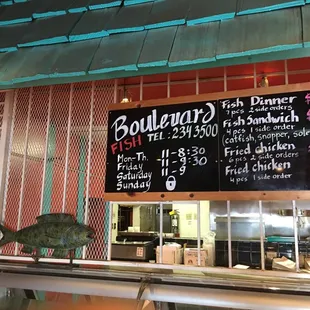 Boulevard
FISH TEL: 234 3500
Mon-Th. 11-8:30
Friday 11-9:30
Saturday 11-9
Sunday
Fish Dinner
7 pcs 2 side orders
Fish Sandwich
4 pcs 1 side order
(catfish, snapper, sole
Fried chicken
6 pcs 2 side orders
Fried chicken
4 pcs 1 side order